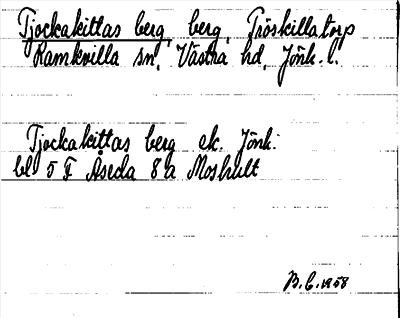 Tjockakittas berg, berg, Tröskillatorp
Ramkvilla sn, Västra hd, Jönk. l.
Tjockakittas berg ek. Jönk.
bl 5 F Åseda 8 a Moshult
B.C. 1958